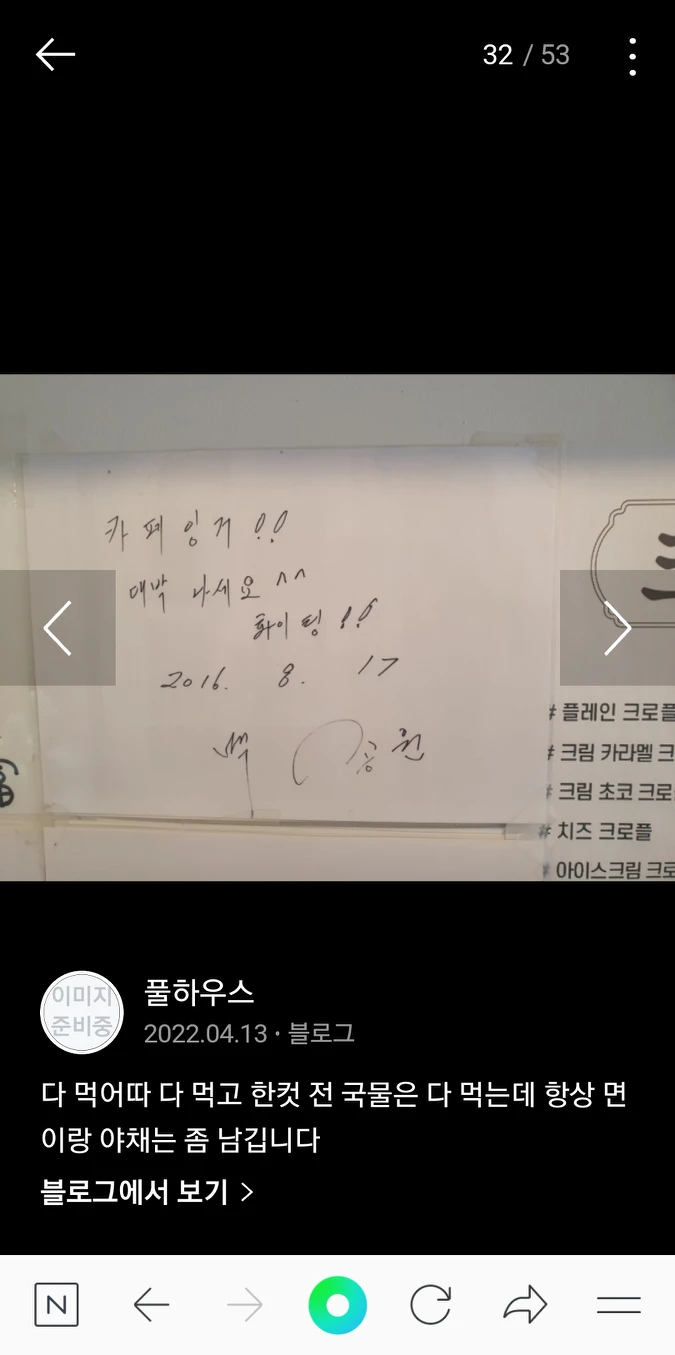 32 / 53
카페잉거!!
대박 나세요^^
화이팅!!
2016. 8. 17
백 종원
# 플레인 크로플
# 크림 카라멜 크
# 크림 초코 크로
# 치즈 크로플
# 아이스크림 크로
이미지
준비중
풀하우스
2022.04.13 · 블로그
다 먹어따 다 먹고 한컷 전 국물은 다 먹는데 항상 면
이랑 야채는 좀 남깁니다
블로그에서 보기 >
N